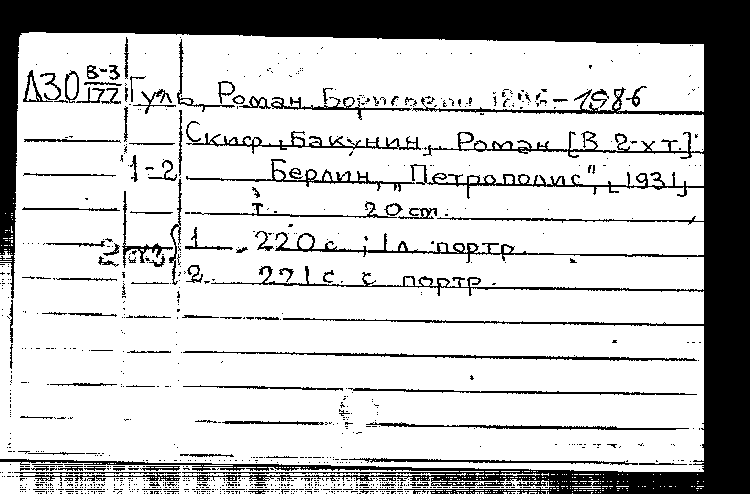 Л30 В-3/177 Гуль, Роман Борисович, 1896-1986
Скиф [Бакунин]. Роман [В 2-х т.]
1-2 Берлин, "Петрополис", [1931]
2 т. 20 cm.
2 экз. 1. 220 с., 1 л. портр.
2. 221 с. с портр.